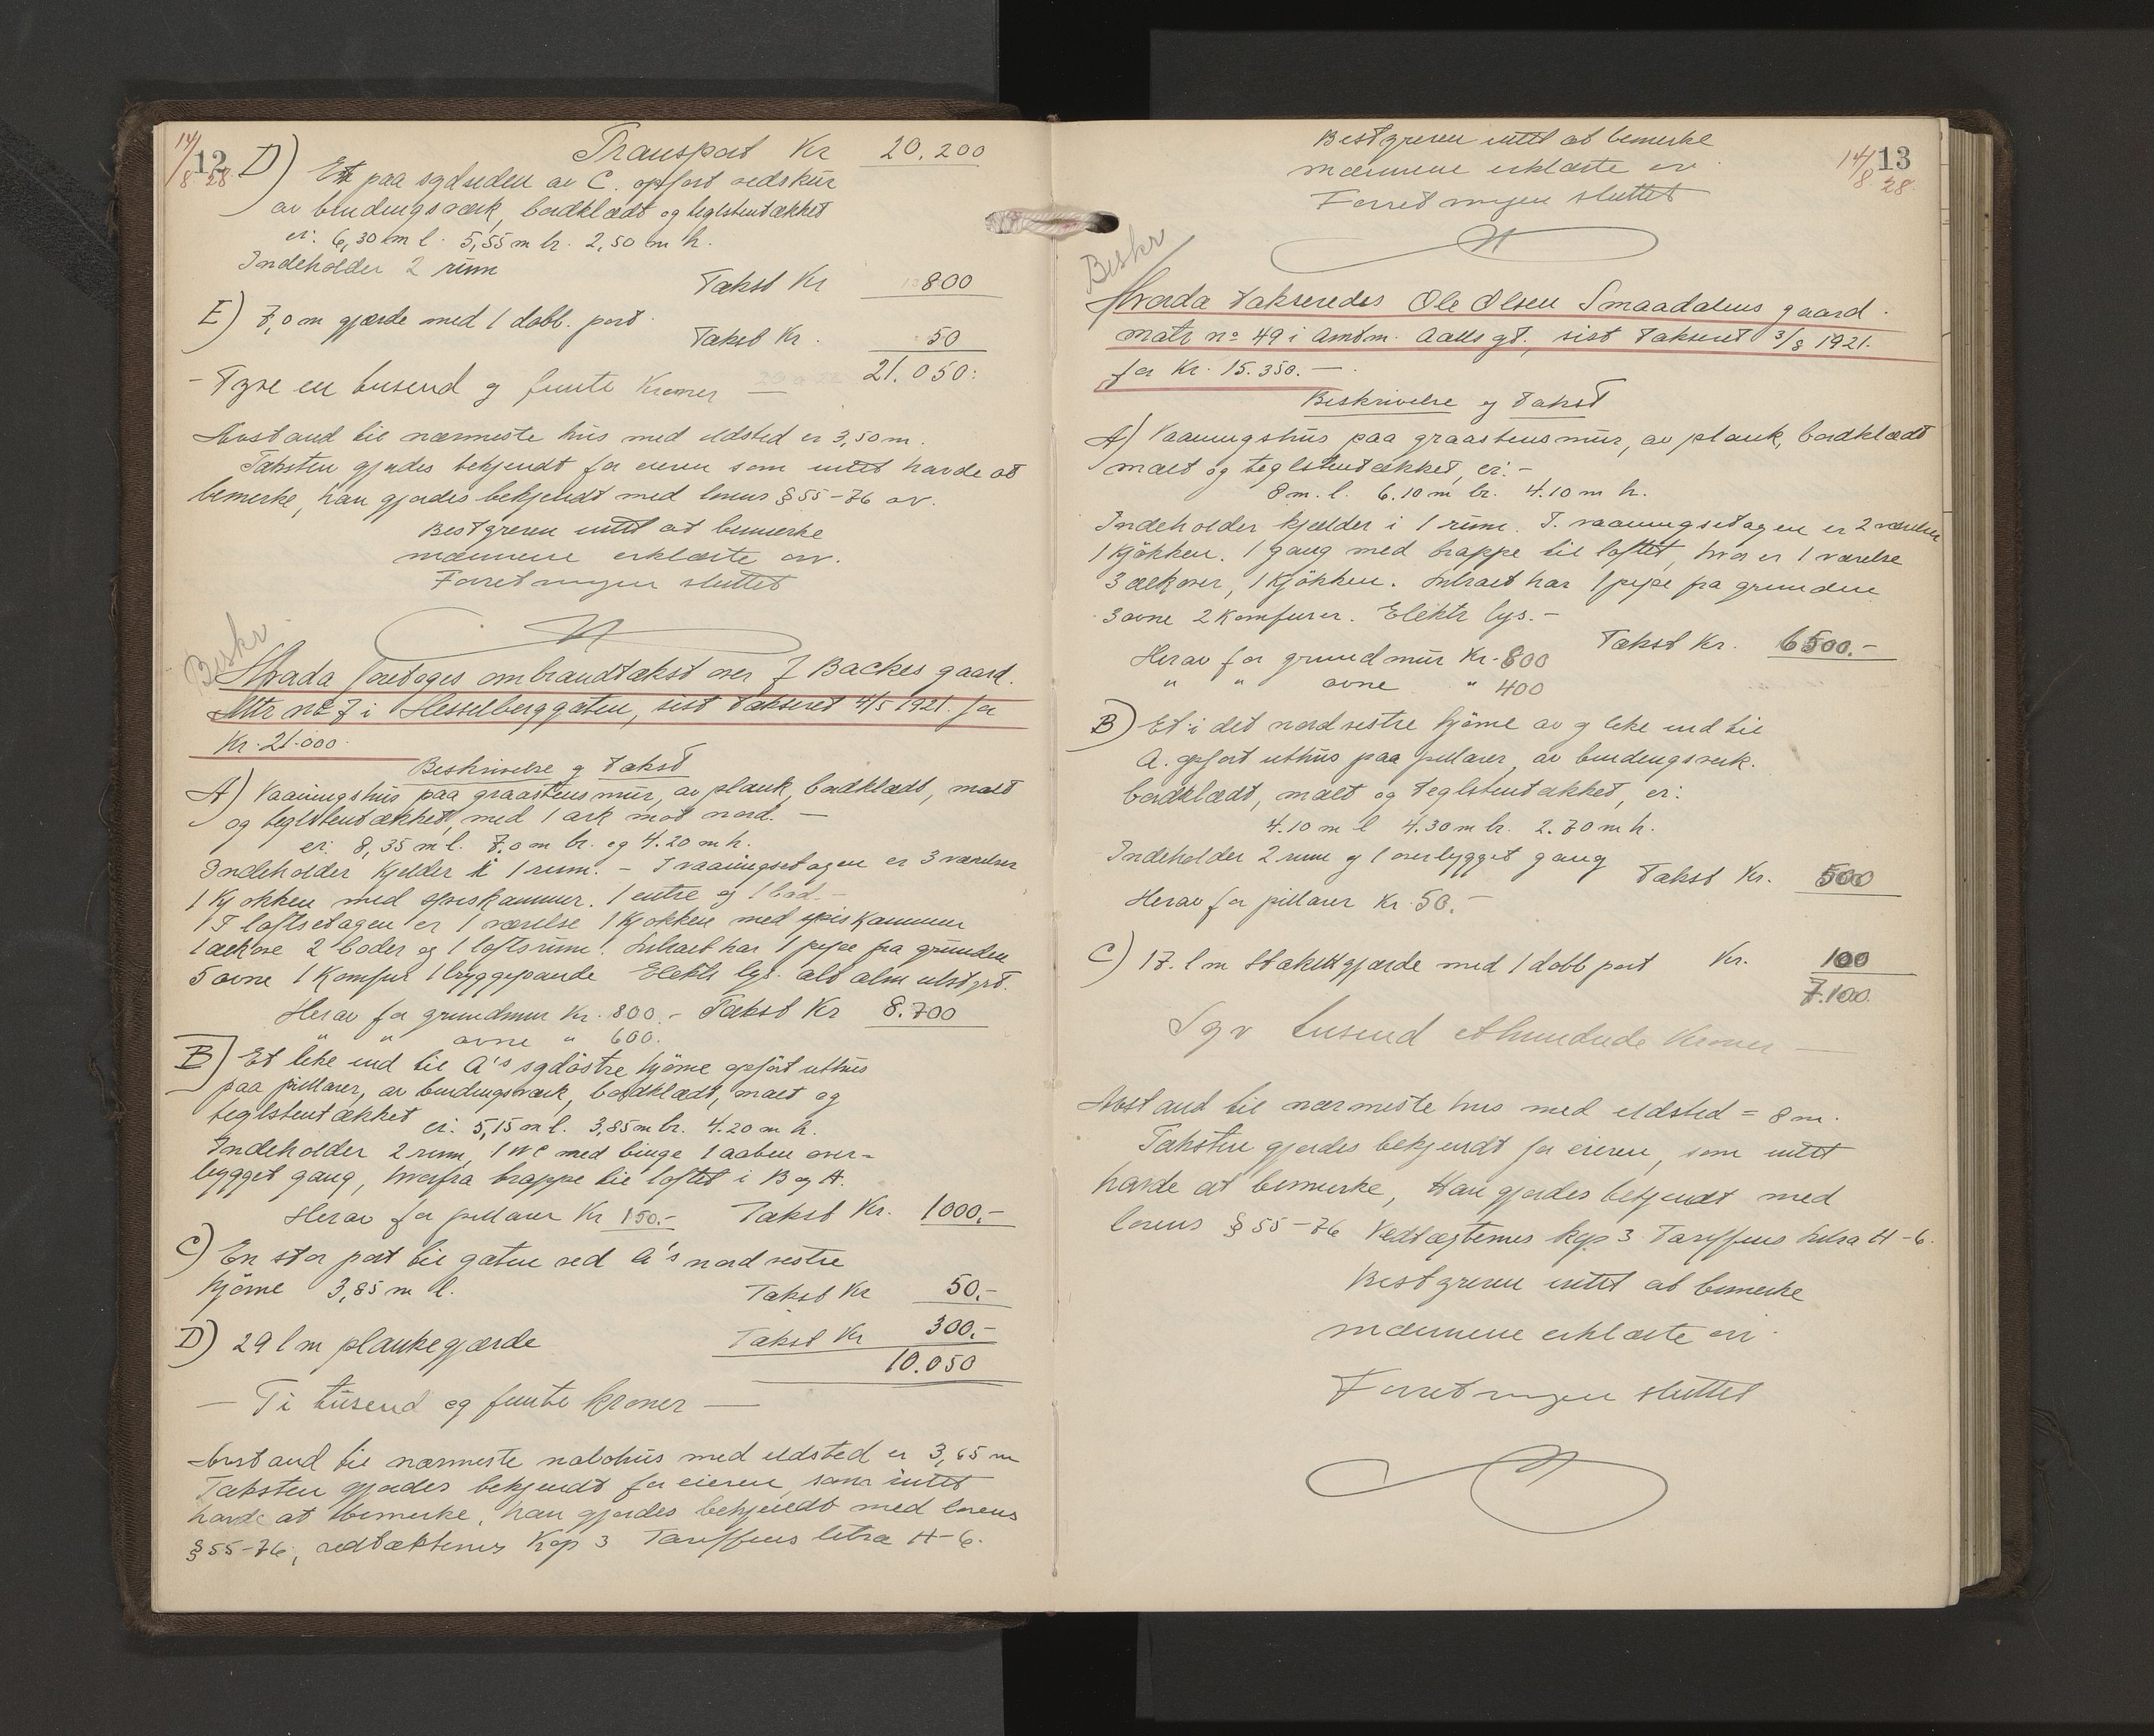 14/8 28
12
Transport Kr 20.200
D) Et paa sydsiden av C. opført vedskur
av bindingsværk, bordklædt og teglstentækket
er: 6,30 m l. 5,55 m br. 2,50 m h.
Indeholder 2 rum
Takst Kr 800
E) 7,0 m gjærde med 1 dobb. port.
Takst Kr. 50
21.050:
- Tyve en tusend og femti Kroner —
Avstand til nærmeste hus med ildsted er 3,50 m.
Taksten gjordes bekjendt for eieren som intet havde at
bemerke, han gjordes bekjendt med lovens § 55-76 av.
Bestyreren intet at bemerke
mænnene erklærte av.
Forretningen sluttet
Beskr
Hvorda foretoges ombrandtakst over J Backes gaard.
Mtr no 7 i Hesselberggaten, sist takseret 4/5 1921. for
Kr. 21.000.
Beskrivelse og takst
A) Vaaningshus paa graastensmur, av plank, bordklædt, malt
og teglstentækket, med 1 ark mot nord. —
er: 8,35 m l. 7.0 m br. og 4.20 m h.
Indeholder Kjelder i 1 rum. - I vaaningsetagen er 3 værelser
1 Kjøkken med spiskammer. 1 entre og 1 bad.-
I loftsetagen er 1 værelse 1 Kjøkken med spiskammer
1 alkove 2 boder og 1 loftsrum. Litra A har 1 pipe fra grunden
5 ovne 1 Komfur 1 bryggepande Elektr lys. alt alm utstyrt.
Herav for grundmur Kr. 800.- Takst Kr 8.700
" " ovne " 600.
B) Et like ind til A's sydøstre hjørne opført uthus
paa pillarer, av bindingsværk, bordklædt, malt og
teglstentækket er: 5,15 m l. 3,85 m br. 4.20 m h.
Indeholder 2 rum, 1 WC med binge 1 aaben over-
bygget gang, hvorfra trappe til loftet i B og A.
Herav for pillarer Kr 150.- Takst Kr. 1000.-
C) En stor port til gaten ved A's nordvestre
hjørne 3,85 m l. Takst Kr 50.-
D) 29 l m plankegjærde Takst Kr 300.-
10.050
— Ti tusend og femti kroner —
Avstand til nærmeste nabohus med ildsted er 3,65 m
Taksten gjordes bekjendt for eieren, som intet
havde at bemerke, han gjordes bekjendt med lovens
§ 55-76, vedtækternes Kap 3 Tariffens litra H-6.
14/8 28
13
Bestyreren intet at bemerke
mænnene erklærte av.
Forretningen sluttet
Beskr
Hvorda takseredes Ole Olsen Smaadalens gaard.
matr no 49 i Amtm. Aalls gt., sist takseret 3/8 1921.
for Kr. 15.350.—
Beskrivelse og takst
A) Vaaningshus paa graastensmur, av plank, bordklædt
malt og teglstentækket, er:-
8 m. l. 6.10 m br. 4.10 m h.
Indeholder kjælder i 1 rum. I vaaningsetagen er 2 værelser
1 Kjøkken. 1 gang med trappe til loftet, hvor er 1 værelse
3 alkover, 1 Kjøkken. Litra A har 1 pipe fra grunden
3 ovne 2 Komfurer. Elektr lys.-
Takst Kr. 6500.-
Herav for grundmur Kr. 800
" " ovne " 400
B) Et i det nordvestre hjørne av og like ind til
A. opført uthus paa pillarer, av bindingsverk.
bordklædt, malt og teglstentækket, er:
4.10 m l 4.30 m br. 2.70 m h.
Indeholder 2 rum og 1 overbygget gang
Takst Kr. 500
Herav for pillarer Kr. 50.-
C) 17. l m Stakitgjærde med 1 dobb port Kr. 100
7.100.
Syv tusend ethundrede Kroner —
Avstand til nærmeste hus med ildsted = 8 m.
Taksten gjordes bekjendt for eieren, som intet
havde at bemerke, Han gjordes bekjendt med
lovens § 55-76 Vedtægternes kap 3 Tariffens litra H-6.
Bestyreren intet at bemerke
mænnene erklærte av.
Forretningen sluttet